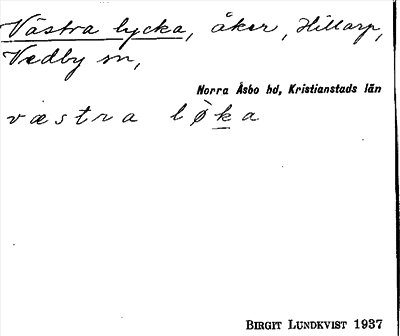 Västra lycka, åker, Hillarp,
Vedby sn,
Norra Åsbo hd, Kristianstads län
væstra lø̀ka
BIRGIT LUNDKVIST 1937